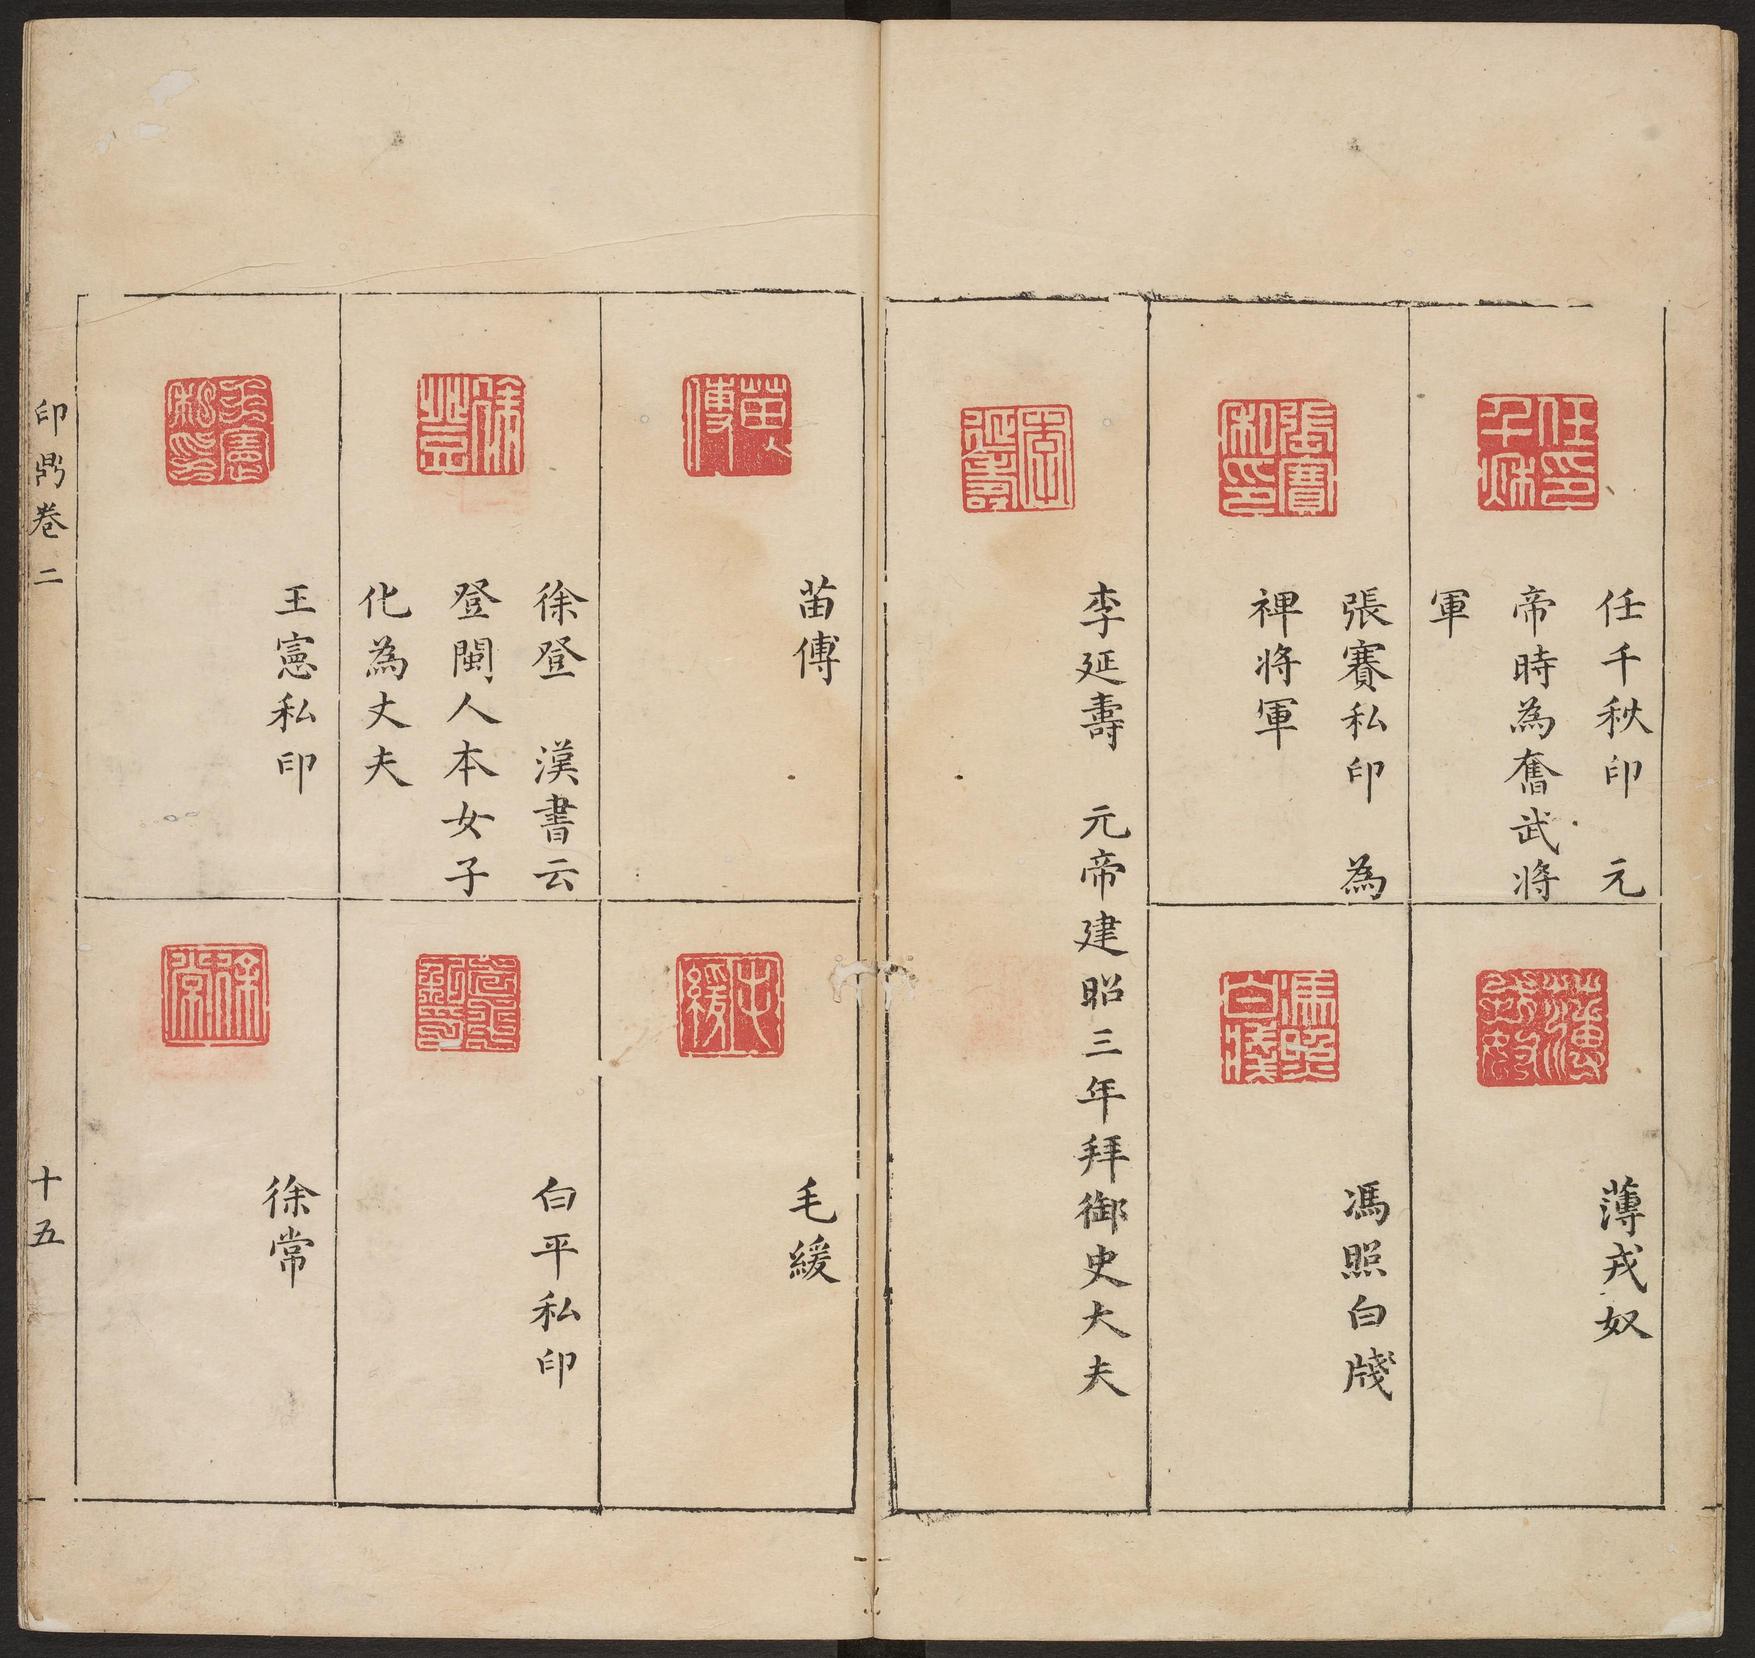 任千秋印　元
帝時為奮武將
軍
張賽私印　為
裨將軍
李延壽　元帝建昭三年拜御史大夫
薄戎奴
馮照白牋
苗傅
徐登　漢書云
登閩人本女子
化為丈夫
王憲私印
毛緩
白平私印
徐常
印鼎卷二
十五